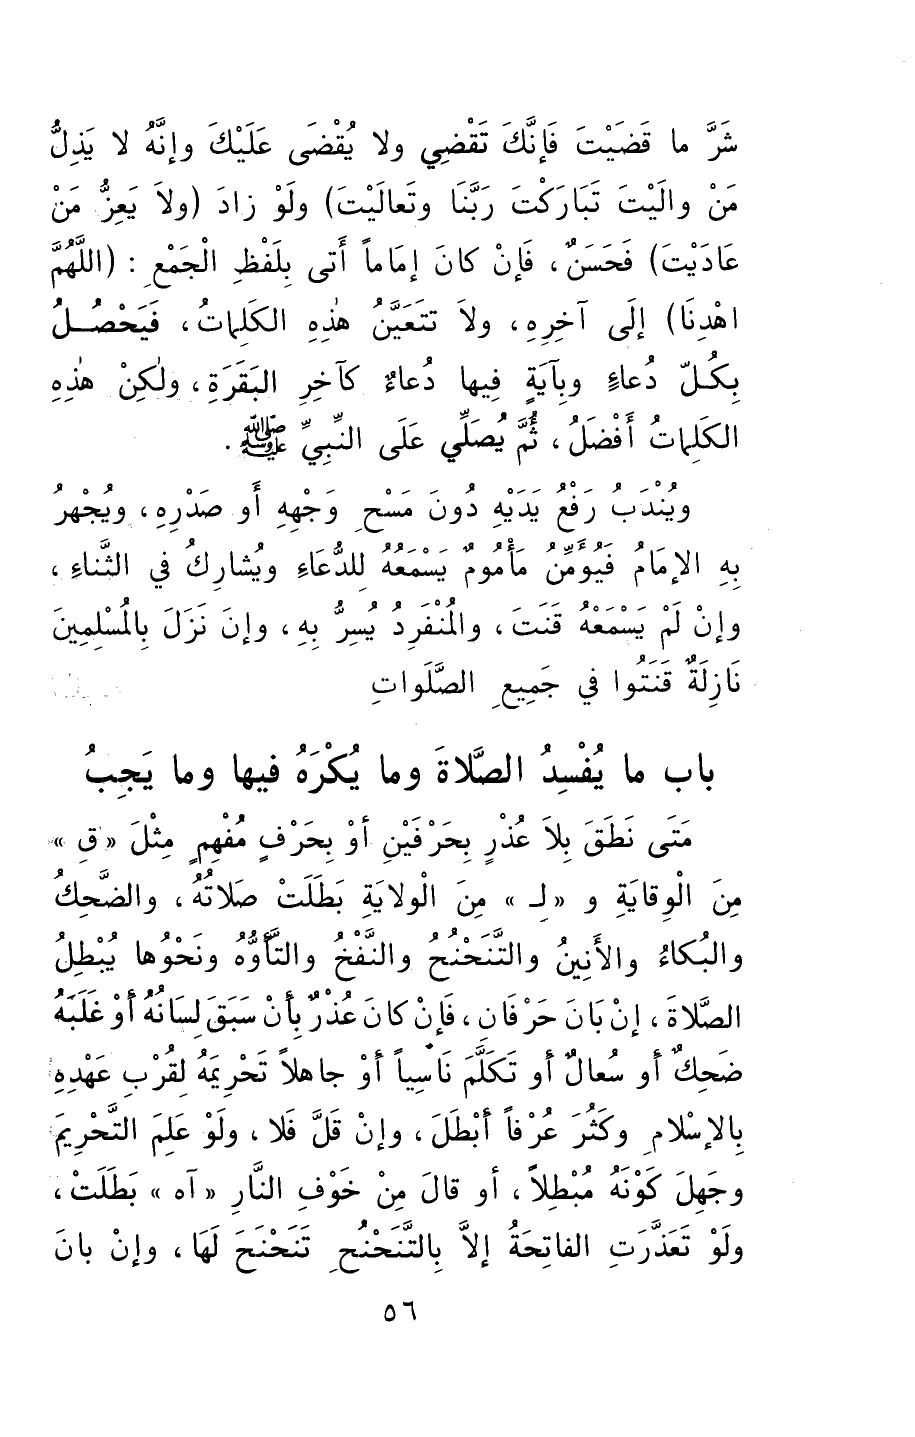 شَرَّ ما قَضَيْتَ فَإِنَّكَ تَقْضِي ولا يُقْضَى عَلَيْكَ وإنَّهُ لا يَذِلُّ
مَنْ والَيْتَ تَبَارَكْتَ رَبَّنَا وتَعالَيْتَ) ولَوْ زادَ (ولاَ يَعِزُّ مَنْ
عَادَيْتَ) فَحَسَنٌ، فَإنْ كانَ إمَاماً أَتى بِلَفْظِ الْجَمْعِ : (اللَّهُمَّ
اهْدِنَا) إلَى آخِرِهِ، ولاَ تتَعَيَّنُ هٰذِهِ الكَلِماتُ، فَيَحْصُـلُ
بِكُـلّ دُعاءٍ وبِآيَةٍ فِيها دُعاءٌ كآخِرِ البَقَرَةِ، ولٰكِنْ هٰذِهِ
الكَلِماتُ أَفْضَلُ، ثُمَّ يُصَلِّي عَلَى النَّبِيِّ ﷺ.
ويُنْدَبُ رَفْعُ يَدَيْهِ دُونَ مَسْحِ وَجْهِهِ أو صَدْرِهِ، ويُجْهِرُ
بِهِ الإمَامُ فَيُؤَمِّنُ مَأْمُومٌ يَسْمَعُهُ لِلدُّعَاءِ ويُشارِكُ في الثَّناءِ،
وإنْ لَمْ يَسْمَعْهُ قَنَتَ، والْمُنْفَرِدُ يُسِرُّ بِهِ، وإنَ نَزَلَ بِالْمُسْلِمِينَ
نَازِلَةٌ قَنَتُوا في جَمِيعِ الصَّلَواتِ
باب ما يُفْسِدُ الصَّلاةَ وما يُكْرَهُ فيها وما يَجِبُ
مَتَى نَطَقَ بِلاَ عُذْرٍ بِحَرْفَيْنِ أوْ بِحَرْفٍ مُفْهِمٍ مِثْلَ «قِ»
مِنَ الْوِقايَةِ و «لِـ» مِنَ الْولايَةِ بَطَلَتْ صَلاتُهُ، والضَّحِكُ
والبُكاءُ والأَنِينُ والتَّنَحْنُحُ والنَّفْخُ والتَّأَوُّهُ ونَحْوُها يُبْطِلُ
الصَّلاةَ، إنْ بَانَ حَرْفَانِ، فَإنْ كانَ عُذْرٌ بِأَنْ سَبَقَ لِسَانُهُ أوْ غَلَبَهُ
ضَحِكٌ أو سُعالٌ أو تَكَلَّمَ نَاسِياً أوْ جاهلاً تَحْرِيمَهُ لِقُرْبِ عَهْدِهِ
بِالإسْلامِ وكَثُرَ عُرْفاً أَبْطَلَ، وإنْ قَلَّ فَلا، ولَوْ عَلِمَ التَّحْرِيمَ
وجَهِلَ كَوْنَهُ مُبْطِلاً، أو قالَ مِنْ خَوْفِ النَّارِ «آه» بَطَلَتْ،
ولَوْ تَعَذَّرَتِ الفاتِحَةُ إلاَّ بِالتَّنَحْنُحِ تَنَحْنَحَ لَهَا، وإنْ بانَ
٥٦